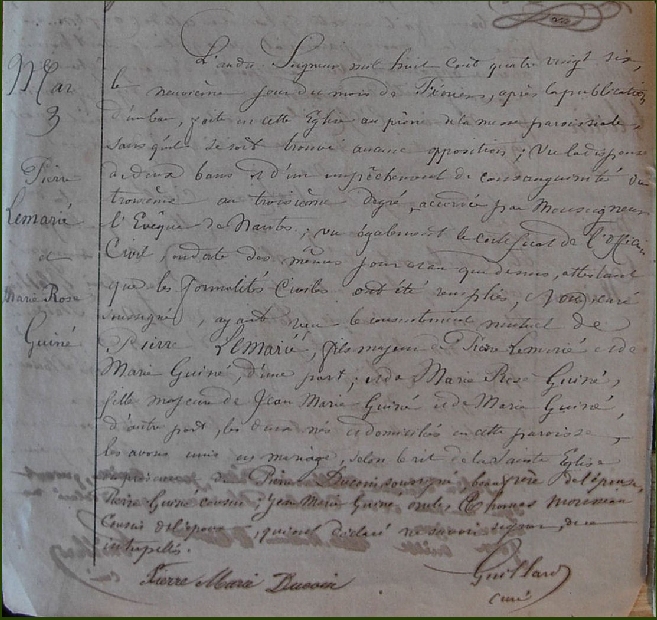 Mar
3
Pierre
Lemarié
et
Marie Rose
Guiné
L'an du Seigneur mil huit cent quatre vingt six,
le neuvième jour du mois de Février, après la publication
d'un ban, faite en cette Eglise au prône de la messe paroissiale
sans qu'il se soit trouvé aucune opposition; Vu la dispense
de deux bans et d'un empêchement de consanguinité du
troisième au troisième degré, accordée par Monseigneur
l'Evêque de Nantes; vu également le certificat de l'Officier
Civil, en date des mêmes jour et an que dessus, attestant
que les formalités Civiles ont été remplies, Nous, curé
soussigné, ayant reçu le consentement mutuel de
Pierre Lemarié, fils majeur de Pierre Lemarié et de
Marie Guiné, d'une part; et de Marie Rose Guiné,
fille majeure de Jean Marie Guiné et de Marie Guiné,
d'autre part, les deux nés et domiciliés en cette paroisse,
les avons unis en mariage, selon le rit de la Sainte Eglise
en présence de Pierre Ducoin soussigné, beau frère de l'épouse,
Pierre Guiné cousin; Jean Marie Guiné, oncle; et Thomas Moreneau
Cousin de l'épouse, qui ont déclaré ne savoir signer, de ce
interpellés.
Pierre Marie Ducoin
Guillard
curé